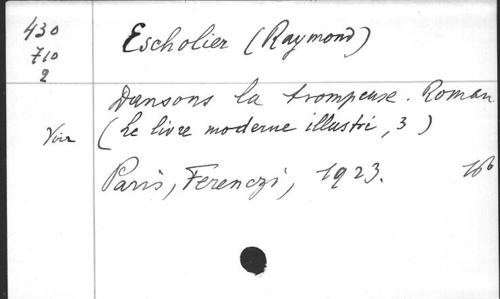 430
710
2
Escholier (Raymond)
Dansons la trompeuse. Roman
Voir
(Le livre moderne illustré, 3)
Paris, Ferenczi, 1923.